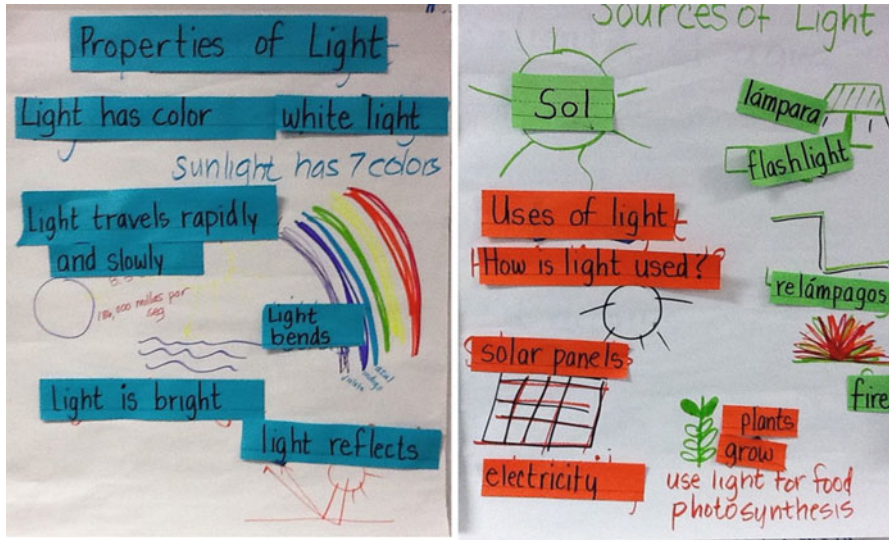 Properties of Light
Light has color white light
Sunlight has 7 colors
Light travels rapidly
and slowly
186,000 millas por
seg
Light
bends
azul
indigo
Light is bright
light reflects
Sources of Light
Sol
lámpara
flashlight
Uses of light
How is light used?
relámpagos
solar panels
fire
plants
grow
electricity
use light for food
photosynthesis